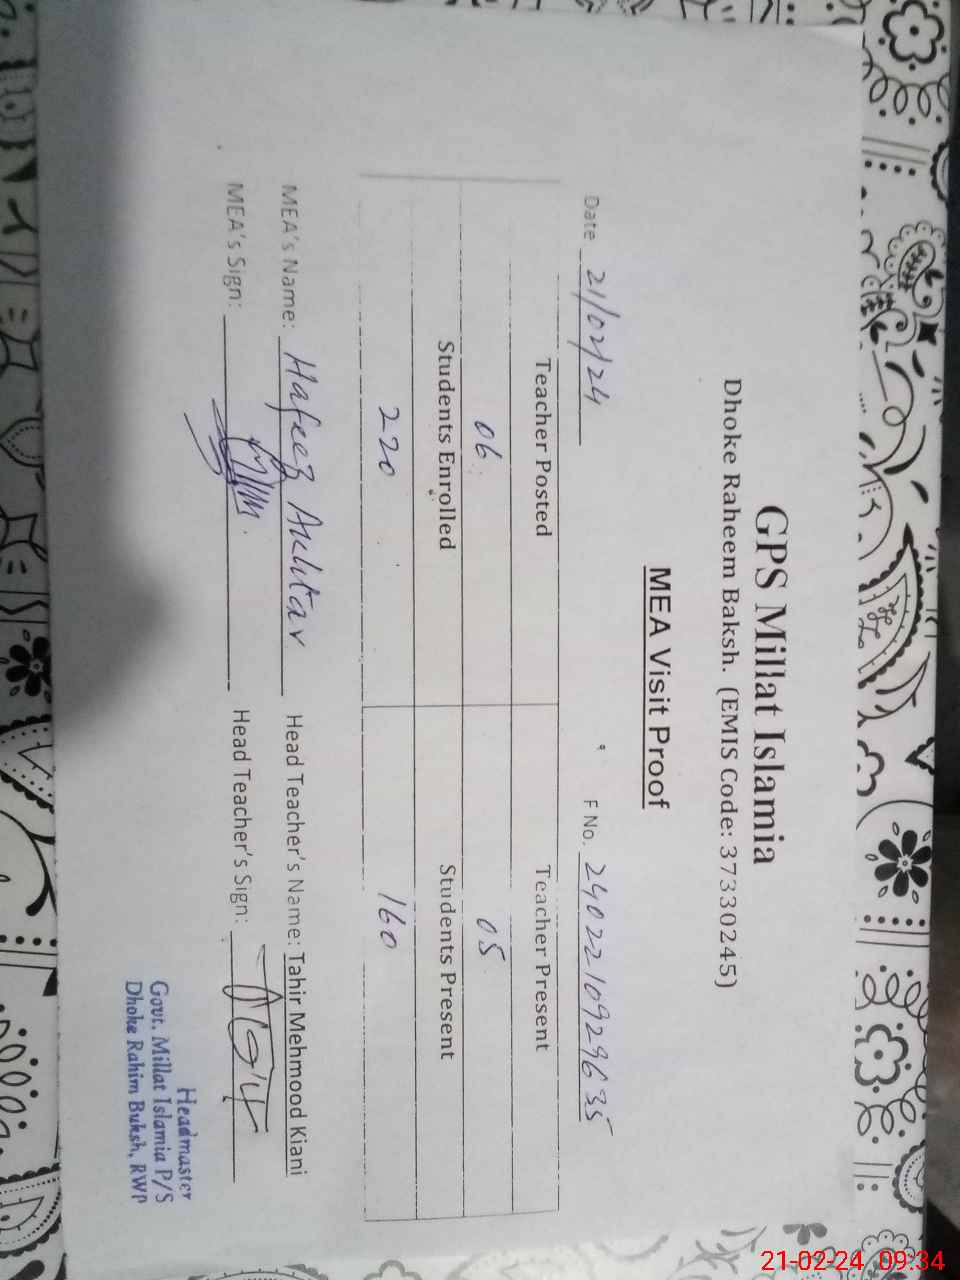 GPS Millat Islamia
Dhoke Raheem Baksh. (EMIS Code: 37330245)
MEA Visit Proof
Date 21/02/24 F No. 2402210929635
Teacher Posted Teacher Present
06 05
Students Enrolled Students Present
220 160
MEA's Name: Hafeez Akhtar Head Teacher's Name: Tahir Mehmood Kiani
MEA's Sign: Head Teacher's Sign:
Headmaster
Govt. Millat Islamia P/S
Dhoke Rahim Buksh, RWP
21-02-24 09:34